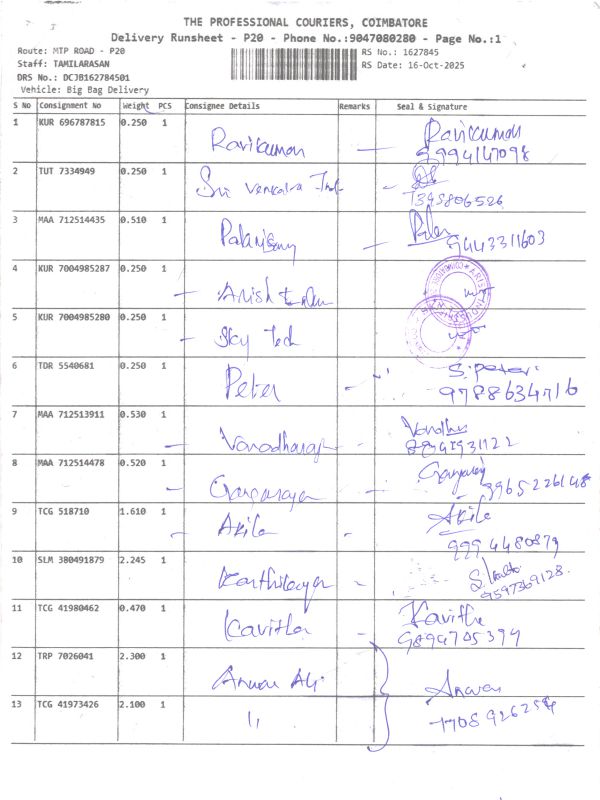 THE PROFESSIONAL COURIERS, COIMBATORE
Delivery Runsheet - P20 - Phone No.:9047080280 - Page No.:1
Route: MTP ROAD - P20
RS No.: 1627845
Staff: TAMILARASAN
RS Date: 16-Oct-2025
DRS No.: DCJB162784501
Vehicle: Big Bag Delivery
S No Consignment No Weight PCS Consignee Details Remarks Seal & Signature
1 KUR 696787815 0.250 1 Ravikumar Ravikumar
9994147098
2 TUT 7334949 0.250 1 Sri Venkatra Ind
7395806526
3 MAA 712514435 0.510 1 Palanisamy
9443311603
4 KUR 7004985287 0.250 1 Arish
5 KUR 7004985280 0.250 1 Sky Tech
6 TDR 5540681 0.250 1 Peter S. Peter
9788634716
7 MAA 712513911 0.530 1 Varadharaj
8 MAA 712514478 0.520 1 Gangaraj
9965226148
9 TCG 518710 1.610 1 Akila Akila
9994480879
10 SLM 380491879 2.245 1 Karthikeyan
9597369128
11 TCG 41980462 0.470 1 Kavitha Kavitha
9894705399
12 TRP 7026041 2.300 1 Anwar Ali Anwar
13 TCG 41973426 2.100 1 "